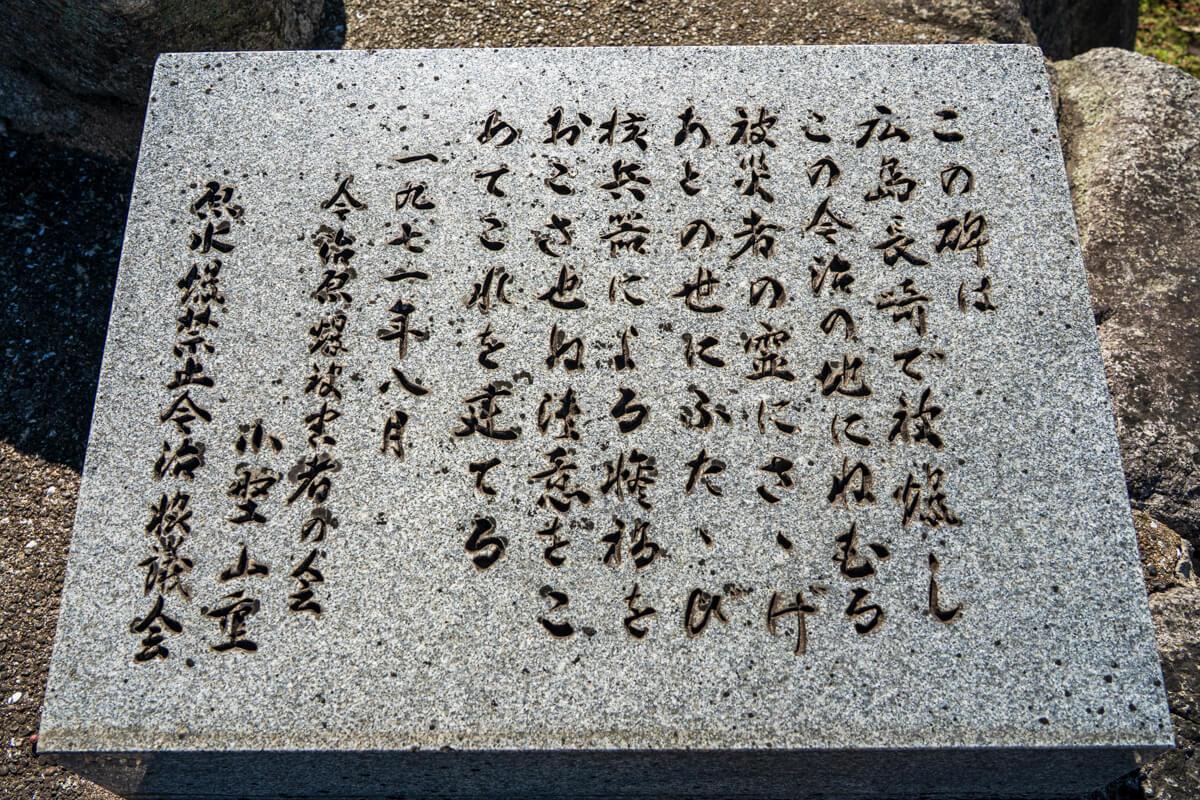 この碑は
広島長崎で被爆し
この今治の地にねむる
被災者の霊にさゝげ
あとの世にふたゝび
核兵器による惨禍を
おこさせぬ決意をこ
めてこれを建てる
一九七一年八月
今治原爆被害者の会
小埜山重
原水爆禁止今治協議会